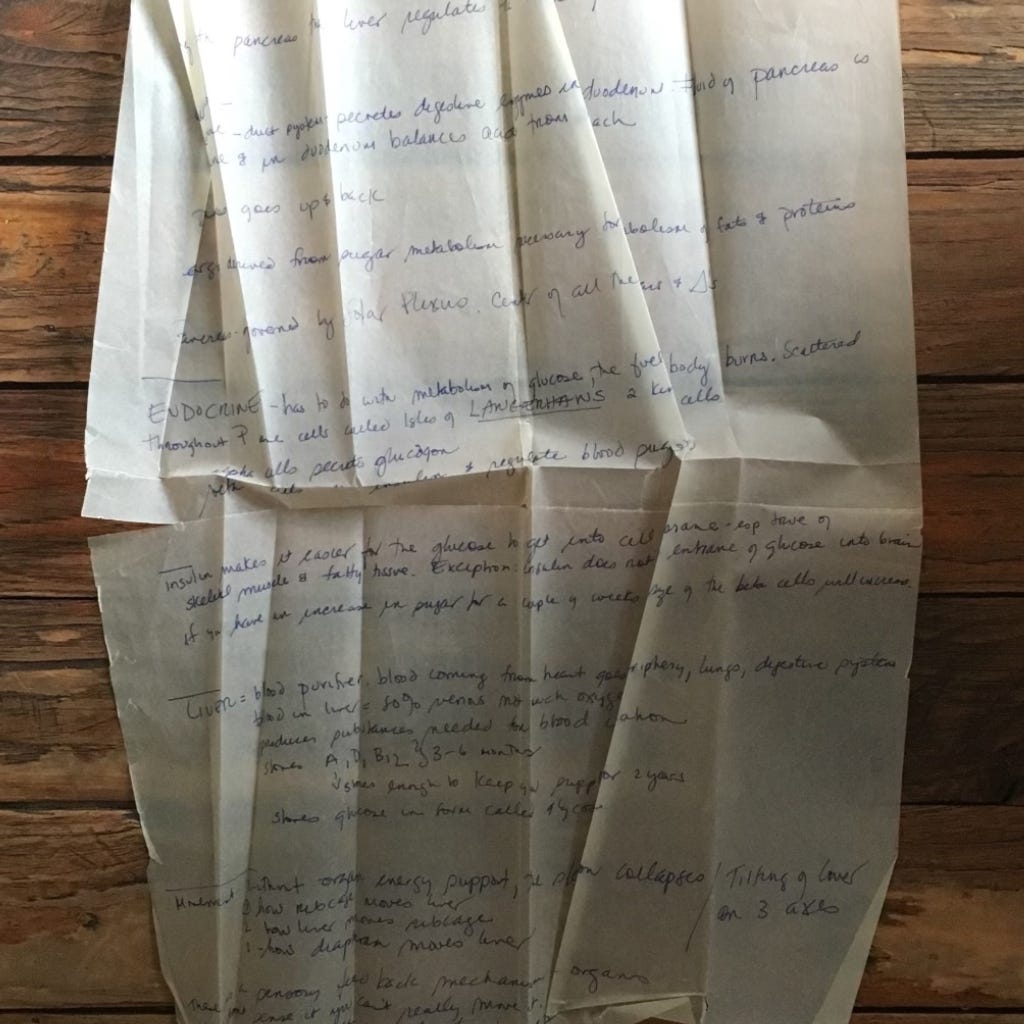 pancreas the liver regulates
duct system secretes digestive enzymes in duodenum. Fluid of pancreas is
& in duodenum balances acid from ach
goes up & back
derived from sugar metabolism necessary for bolism of fats & proteins
governed by Solar Plexus. Center of all the
ENDOCRINE - has to do with metabolism of glucose, the fuel body burns. Scattered
throughout P are cells called Isles of LANGERHANS 2 kin cells
alpha cells secrete glucagon
beta cells insulin & regulate blood sugar
Insulin makes it easier for the glucose to get into cell brane - esp true of
skeletal muscle & fatty tissue. Exception: insulin does not entrance of glucose into brain
If you have an increase in sugar for a couple of weeks size of the beta cells will increase
LIVER = blood purifier. blood coming from heart goes riphery, lungs, digestive system
blood in liver = 80% venous not much oxyge
produces substances needed for blood
stores A, D, B12 } 3-6 months
stores enough to keep you supp for 2 years
stores glucose in form called glyco
Movement Without organ energy support, the collapses / Tilting of liver
how ribcage moves liver on 3 axes
2 how liver moves ribcage
how diaphram moves liver
sensory feed back mechanism organs
sense it you can't really move it.